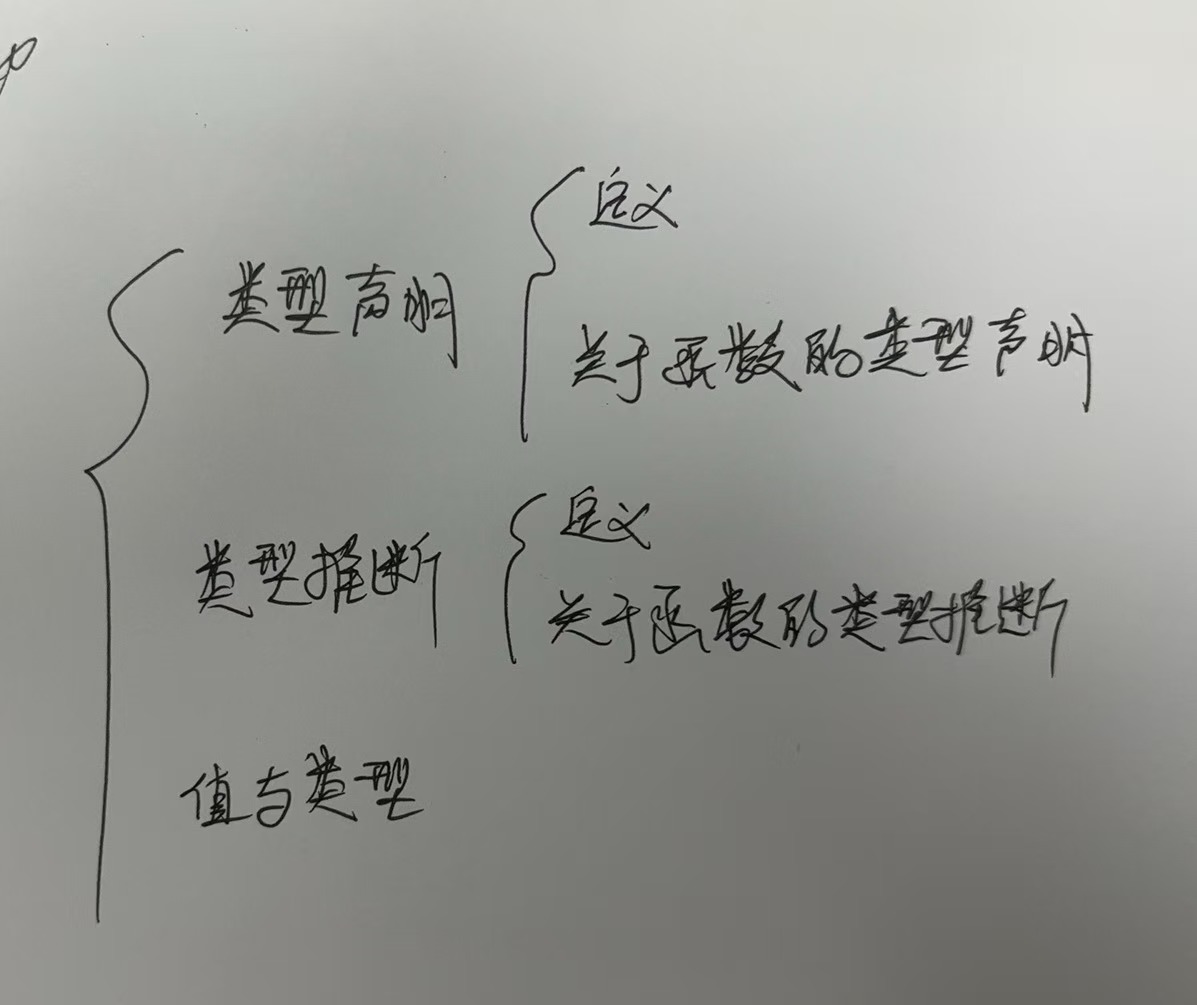 定义
类型声明
关于函数的类型声明
定义
类型推断
关于函数的类型推断
值与类型